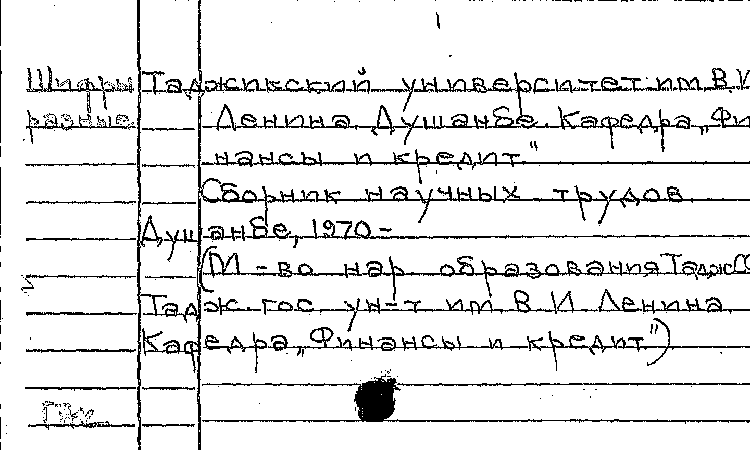 Шифры Таджикский университет им. В.И
разные Ленина. Душанбе. Кафедра „Фи
нансы и кредит"
Сборник научных трудов.
Душанбе, 1970 -
(М-во нар. образования ТаджСС
Тадж. гос. ун-т им. В. И. Ленина.
Кафедра „Финансы и кредит")